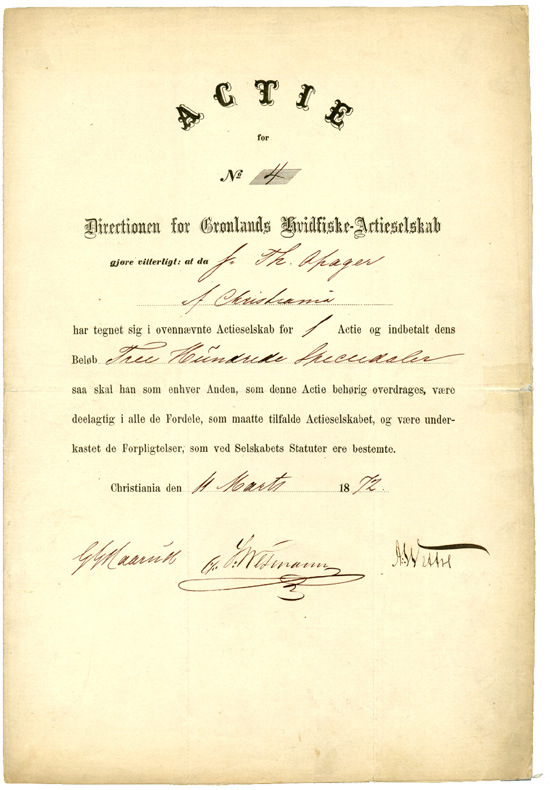 ACTIE
for
No 4
Directionen for Grønlands Hvidfiske-Actieselskab
gjøre vitterligt: at da Hr Th. Apager
Af Christiania
har tegnet sig i ovennævnte Actieselskab for 1 Actie og indbetalt dens
Beløb Tree Hundrede Speciedaler
saa skal han som enhver Anden, som denne Actie behørig overdrages, være
deelagtig i alle de Fordele, som maatte tilfalde Actieselskabet, og være under-
kastet de Forpligtelser, som ved Selskabets Statuter ere bestemte.
Christiania den 11 Marts 1872.